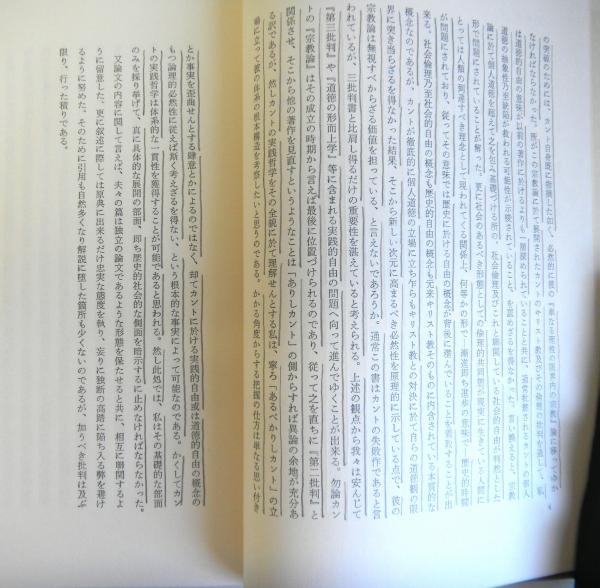 の突破のためには、カント自身既に指摘した如く、必然的に彼の『単なる理性の限界内の宗教』論に移ってゆか
なければならなかった。所がこの宗教論に於て展開されたカントのキリスト教及びその倫理の批判を通して、私
は道徳的自由の意義が以前の著作に於けるよりも一層深められていることと共に、通常考えられるカントの個人
道徳の抽象性乃至欠陥が救われる可能性が示唆されていること、を認めざるを得なかった。言い換えると、宗教
論に於て個人道徳を超えて之を包み基礎づける所の、社会倫理及びこれと聯関している社会的自由が判然とした
形で問題にされていることが解った。更に社会のあるべき形態としての倫理的共同態が現実に生きている人間に
とっては人類の到達すべき理念として現われてくる関係上、何等かの形で、漸近即ち進歩の意味で、歴史的時間
が問題にされており、従ってその意味では歴史に於ける自由の概念が背後に潜んでいることを看取することが出
来る。社会倫理乃至社会的自由の概念も歴史的自由の概念も元来キリスト教そのものに内含されている本質的な
概念なのであるが、カントが徹底的に個人道徳の立場に立ち乍らもキリスト教との対決に於て自らの道徳観の限
界に突き当らざるを得なかった結果、そこから新しい次元に高まるべき必然性を原理的に示している点で、彼の
宗教論は無視すべからざる価値を担っている、と言えないであろうか。通常この書はカントの失敗作であると言
われているが、三批判書と比肩し得るだけの重要性を湛えていると考えられる。上述の観点から我々は安んじて
『第三批判』や『道徳の形而上学』等に含まれる実践的自由の問題へ向って進んでゆくことが出来る。勿論カン
トの『宗教論』はその成立の時期から言えば最後に位置づけられるのであり、従って之を直ちに『第二批判』と
関係させ、そこから他の著作を見直すというようなことは「ありしカント」の側からすれば異論の余地が充分あ
る訳であるが、然しカントの実践哲学をその全貌に於て理解せんとする私は、寧ろ「あるべかりしカント」の立
場に立って彼の体系の根本構造を考察したいと思うのである。かかる角度からする把握の仕方は単なる思い付き
とか事実を歪曲せんとする肆意とかによるのではなく、却てカントに於ける実践的自由或は道徳的自由の概念の
もつ論理的必然性に従えば斯く考えざるを得ない、という根本的な事実によって可能なのである。かくしてカン
トの実践哲学は体系的な一貫性を獲得することが可能であると思われる。然し此処では、私はその基礎的な部面
のみを採り挙げて、真に具体的な展開の部面、即ち歴史的社会的な側面を暗示するに止めなければならなかった。
又論文の内容に関して言えば、夫々の篇は独立の論文であるような形態を保たせると共に、相互に聯関するよ
うに留意した。更に叙述に際しては原典に出来るだけ忠実な態度を執り、妄りに独断の高踏に陥ち入る弊を避け
るように努めた。そのために引用も自然多くなり解説に堕した箇所も少くないのであるが、加うべき批判は及ぶ
限り、行った積りである。